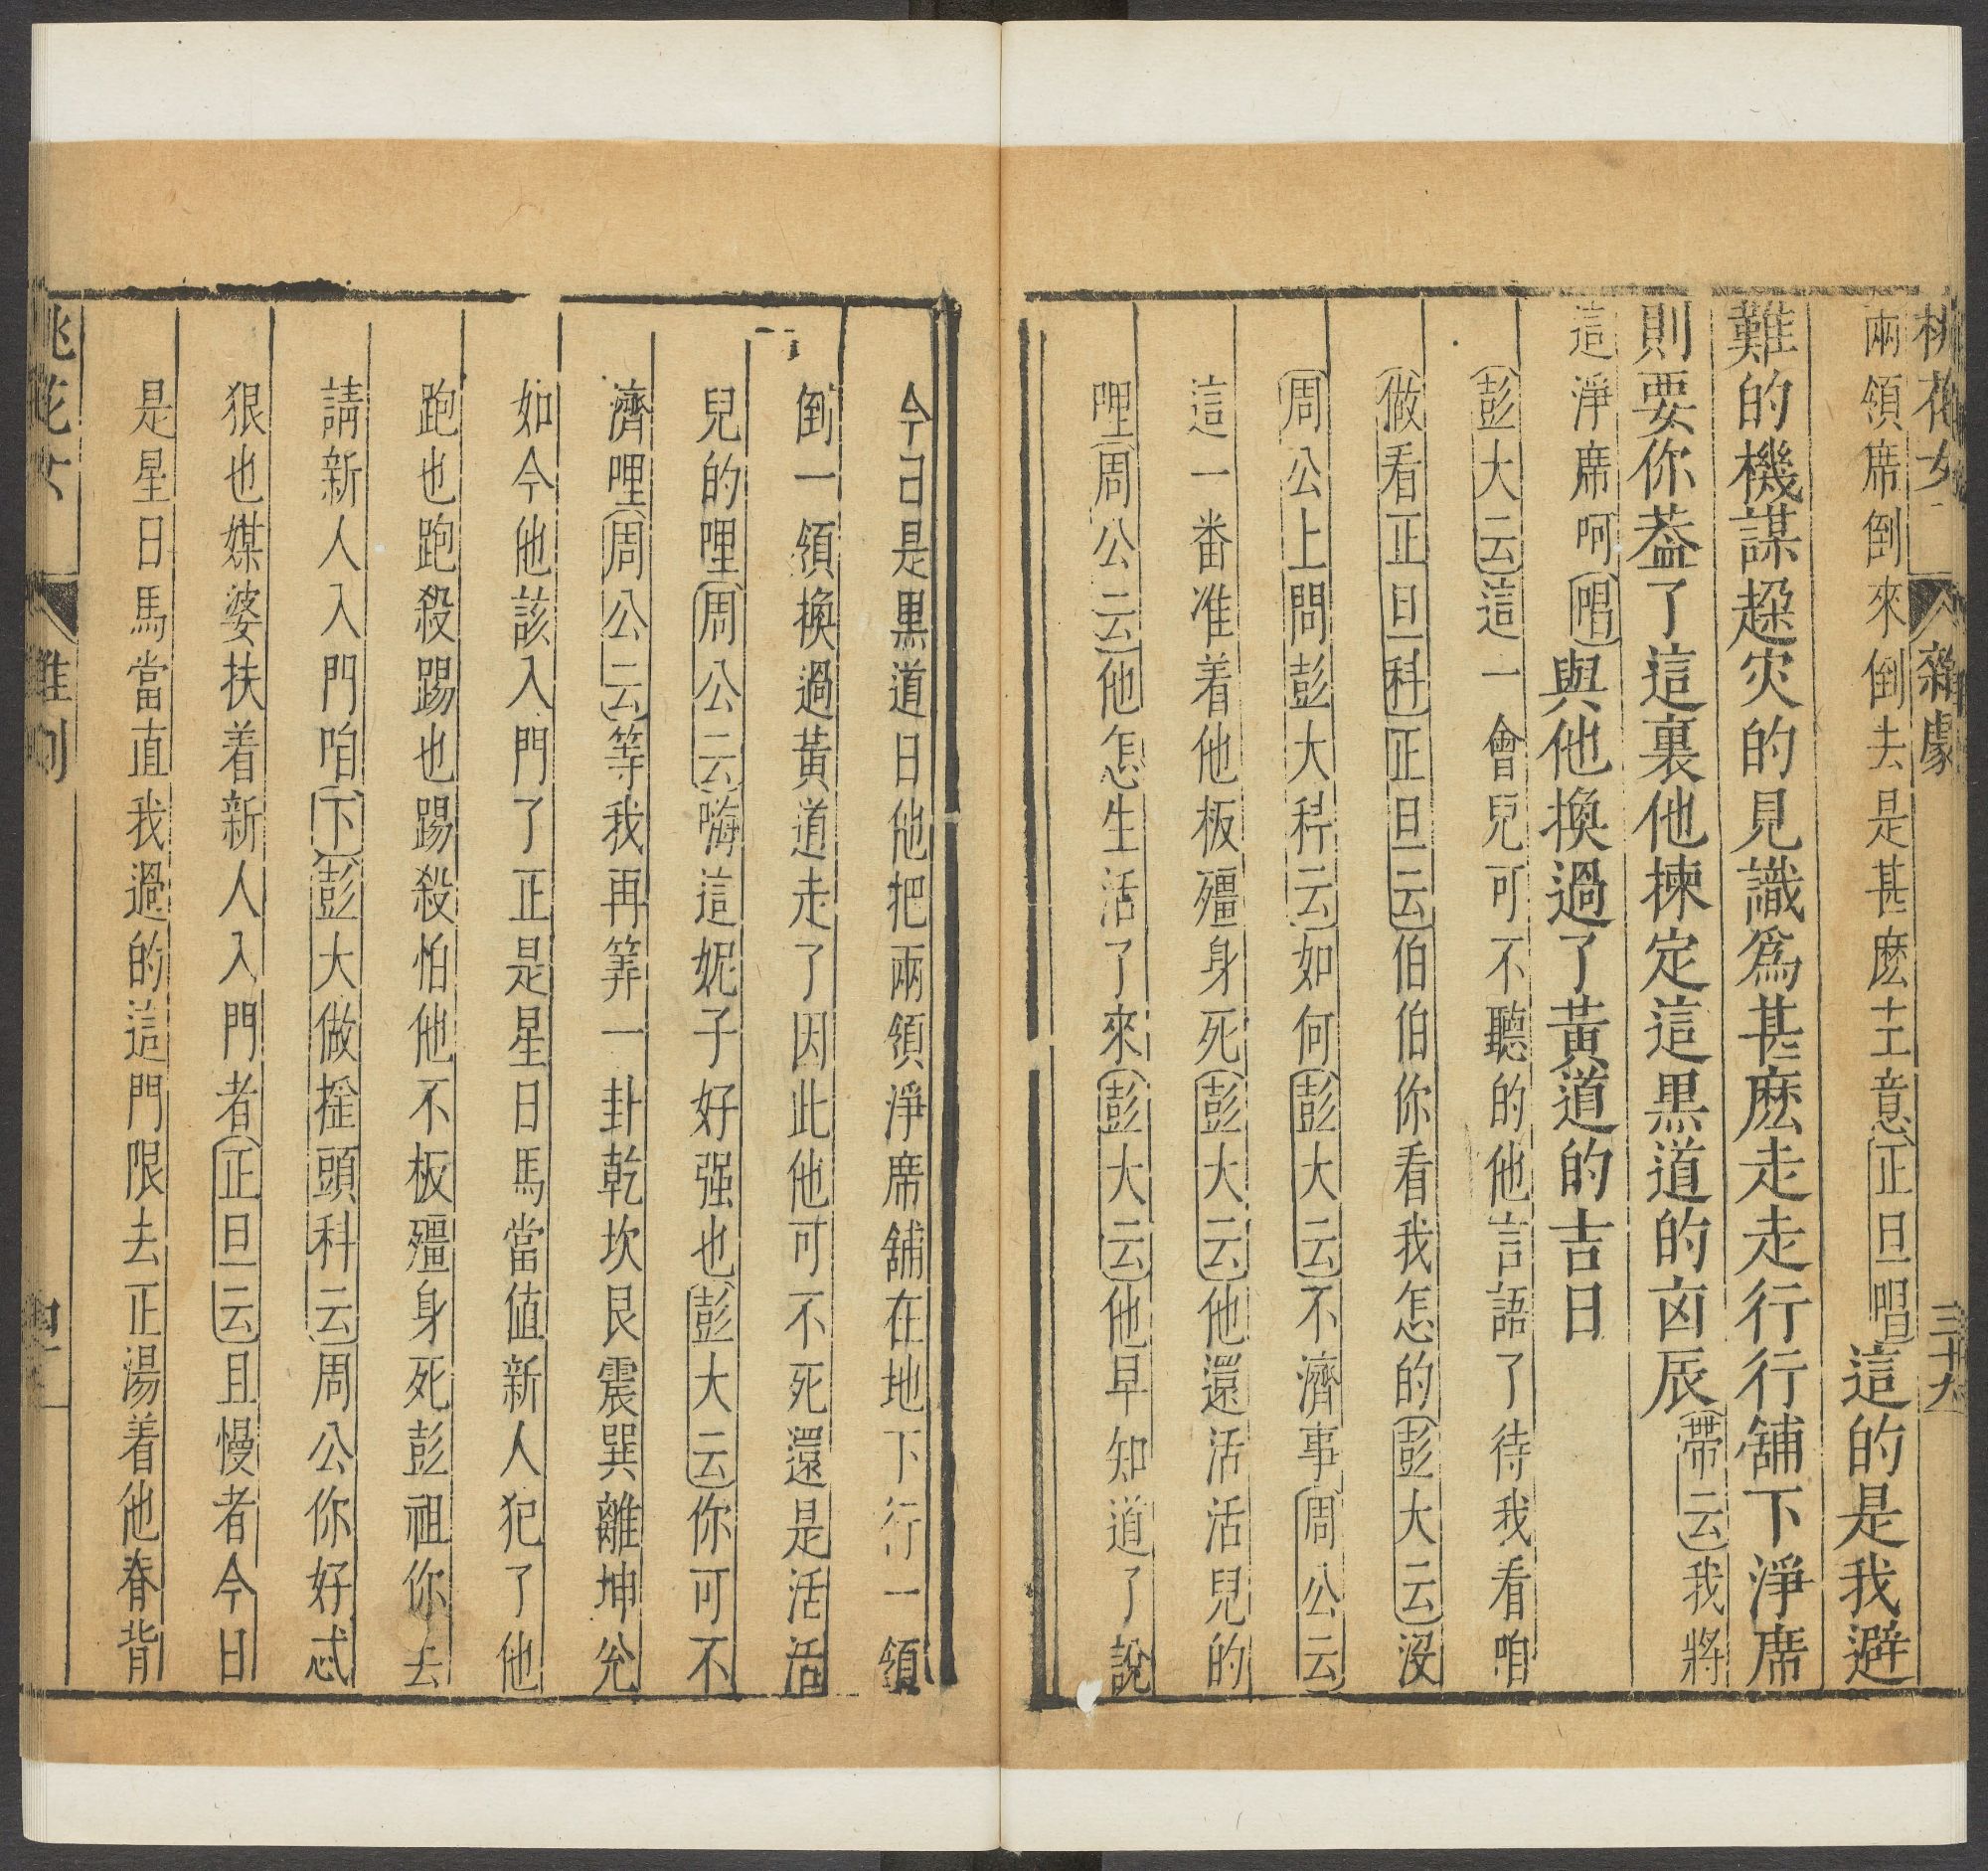 桃花女 雜劇 三十九
兩領席倒來倒去是甚麽主意正旦唱這的是我避
難的機謀趓灾的見識爲甚麽走走行行舖下淨席
則要你葢了這裏他揀定這黒道的凶辰帶云我將
這淨席呵唱與他換過了黃道的吉日
彭大云這一會兒可不聽的他言語了待我看咱
做看正旦科正旦云伯伯你看我怎的彭大云没
周公上問彭大科云如何彭大云不濟事周公云
這一番准着他板殭身死彭大云他還活活兒的
哩周公云他怎生活了來彭大云他早知道了說
今日是黒道日他把兩領淨席舖在地下行一領
倒一領換過黃道走了因此他可不死還是活活
兒的哩周公云嗨這妮子好强也彭大云你可不
濟哩周公云等我再筭一卦乾坎艮震巽離坤兊
如今他該入門了正是星日馬當值新人犯了他
跑也跑殺踢也踢殺怕他不板殭身死彭祖你去
請新人入門咱下彭大做搖頭科云周公你好忒
狠也媒婆扶着新人入門者正旦云且慢者今日
是星日馬當直我過的這門限去正湯着他脊背
桃花女 雜劇